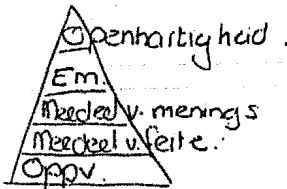 Openhartigheid.
Em.
Meedeel v. menings
Meedeel v. feite.
Oppv.